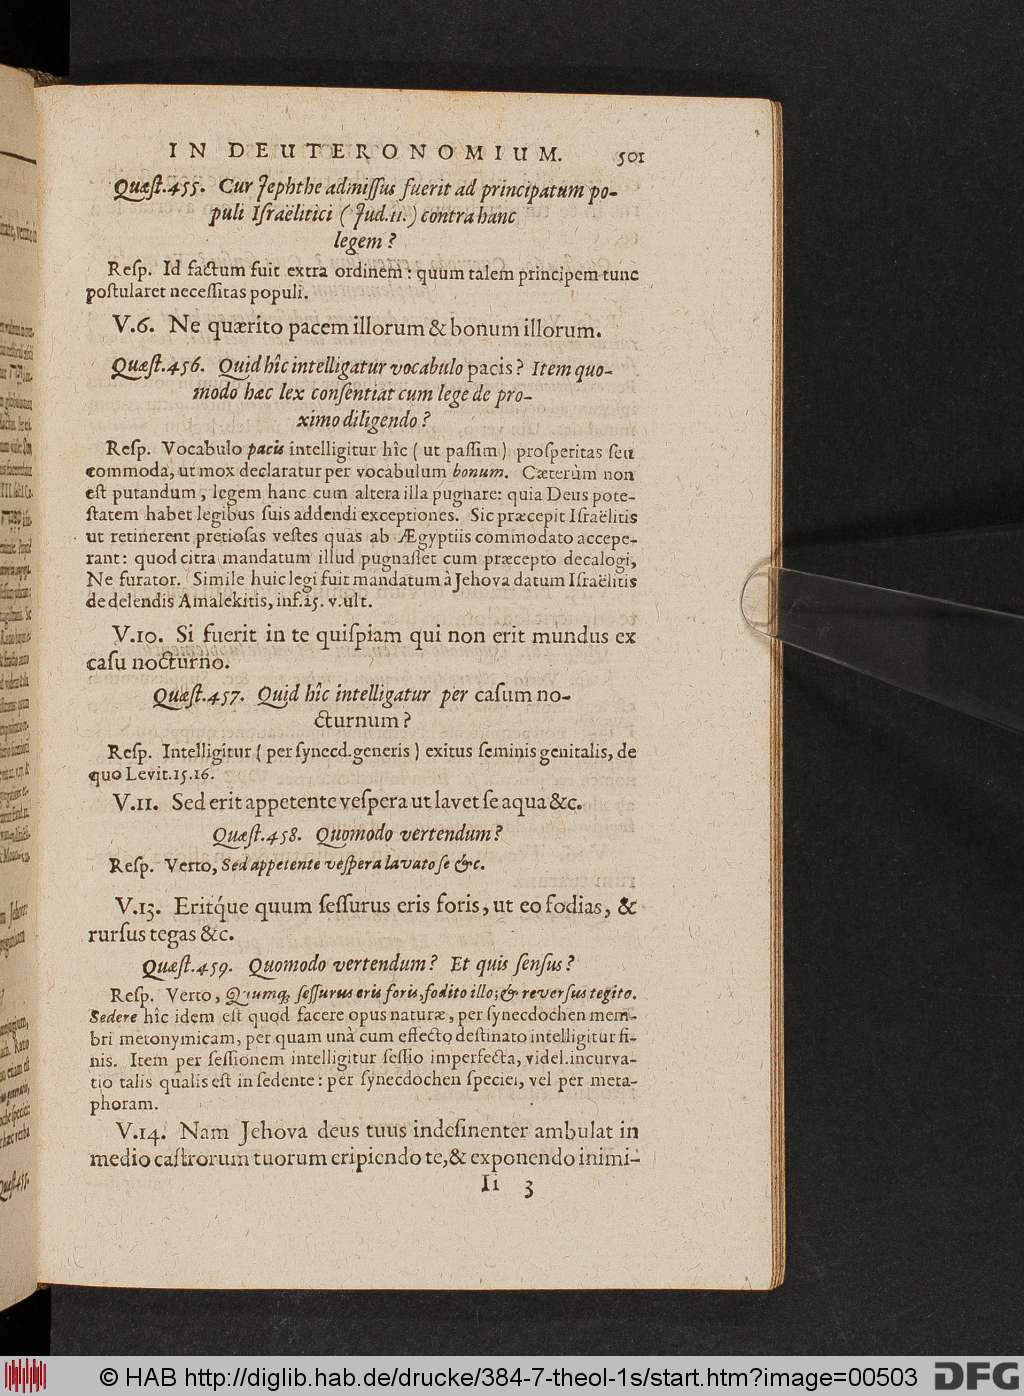 IN DEUTERONOMIUM. 501
Quæſt.455. Cur Jephthe admiſſus fuerit ad principatum po-
puli Iſraëlitici (Jud.11.) contra hanc
legem?
Reſp. Id factum fuit extra ordinem: quum talem principem tunc
poſtularet neceſſitas populi.
V.6. Ne quærito pacem illorum & bonum illorum.
Quæſt.456. Quid hîc intelligatur vocabulo pacis? Item quo-
modo hæc lex conſentiat cum lege de pro-
ximo diligendo?
Reſp. Vocabulo pacis intelligitur hîc (ut paſſim) proſperitas ſeu
commoda, ut mox declaratur per vocabulum bonum. Cæterùm non
eſt putandum, legem hanc cum altera illa pugnare: quia Deus pote-
ſtatem habet legibus ſuis addendi exceptiones. Sic præcepit Iſraëlitis
ut retinerent pretioſas veſtes quas ab Ægyptiis commodato accepe-
rant: quod citra mandatum illud pugnaſſet cum præcepto decalogi,
Ne furator. Simile huic legi fuit mandatum à Jehova datum Iſraëlitis
de delendis Amalekitis, inf.25. v.ult.
V.10. Si fuerit in te quiſpiam qui non erit mundus ex
caſu nocturno.
Quæſt.457. Quid hîc intelligatur per caſum no-
cturnum?
Reſp. Intelligitur (per ſynecd.generis) exitus ſeminis genitalis, de
quo Levit.15.16.
V.11. Sed erit appetente veſpera ut lavet ſe aqua &c.
Quæſt.458. Quomodo vertendum?
Reſp. Verto, Sed appetente veſpera lavato ſe &c.
V.13. Eritq́ue quum ſeſſurus eris foris, ut eo fodias, &
rurſus tegas &c.
Quæſt.459. Quomodo vertendum? Et quis ſenſus?
Reſp. Verto, Quumq; ſeſſurus eris foris, fodito illo; & reverſus tegito.
Sedere hîc idem eſt quod facere opus naturæ, per ſynecdochen mem-
bri metonymicam, per quam unà cum effecto deſtinato intelligitur fi-
nis. Item per ſeſſionem intelligitur ſeſſio imperfecta, videl.incurva-
tio talis qualis eſt in ſedente: per ſynecdochen ſpeciei, vel per meta-
phoram.
V.14. Nam Jehova deus tuus indeſinenter ambulat in
medio caſtrorum tuorum eripiendo te, & exponendo inimi-
Ii 3
© HAB http://diglib.hab.de/drucke/384-7-theol-1s/start.htm?image=00503
DFG